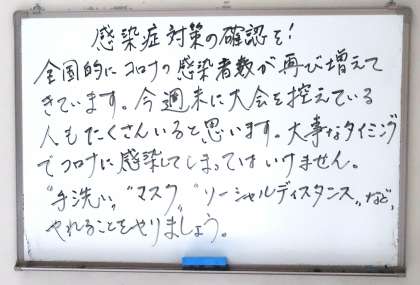 感染症対策の確認を!
全国的にコロナの感染者数が再び増えて
きています。今週末に大会を控えている
人もたくさんいると思います。大事なタイミング
でコロナに感染してしまってはいけません。
“手洗い”“マスク”“ソーシャルディスタンス”など、
やれることをやりましょう。